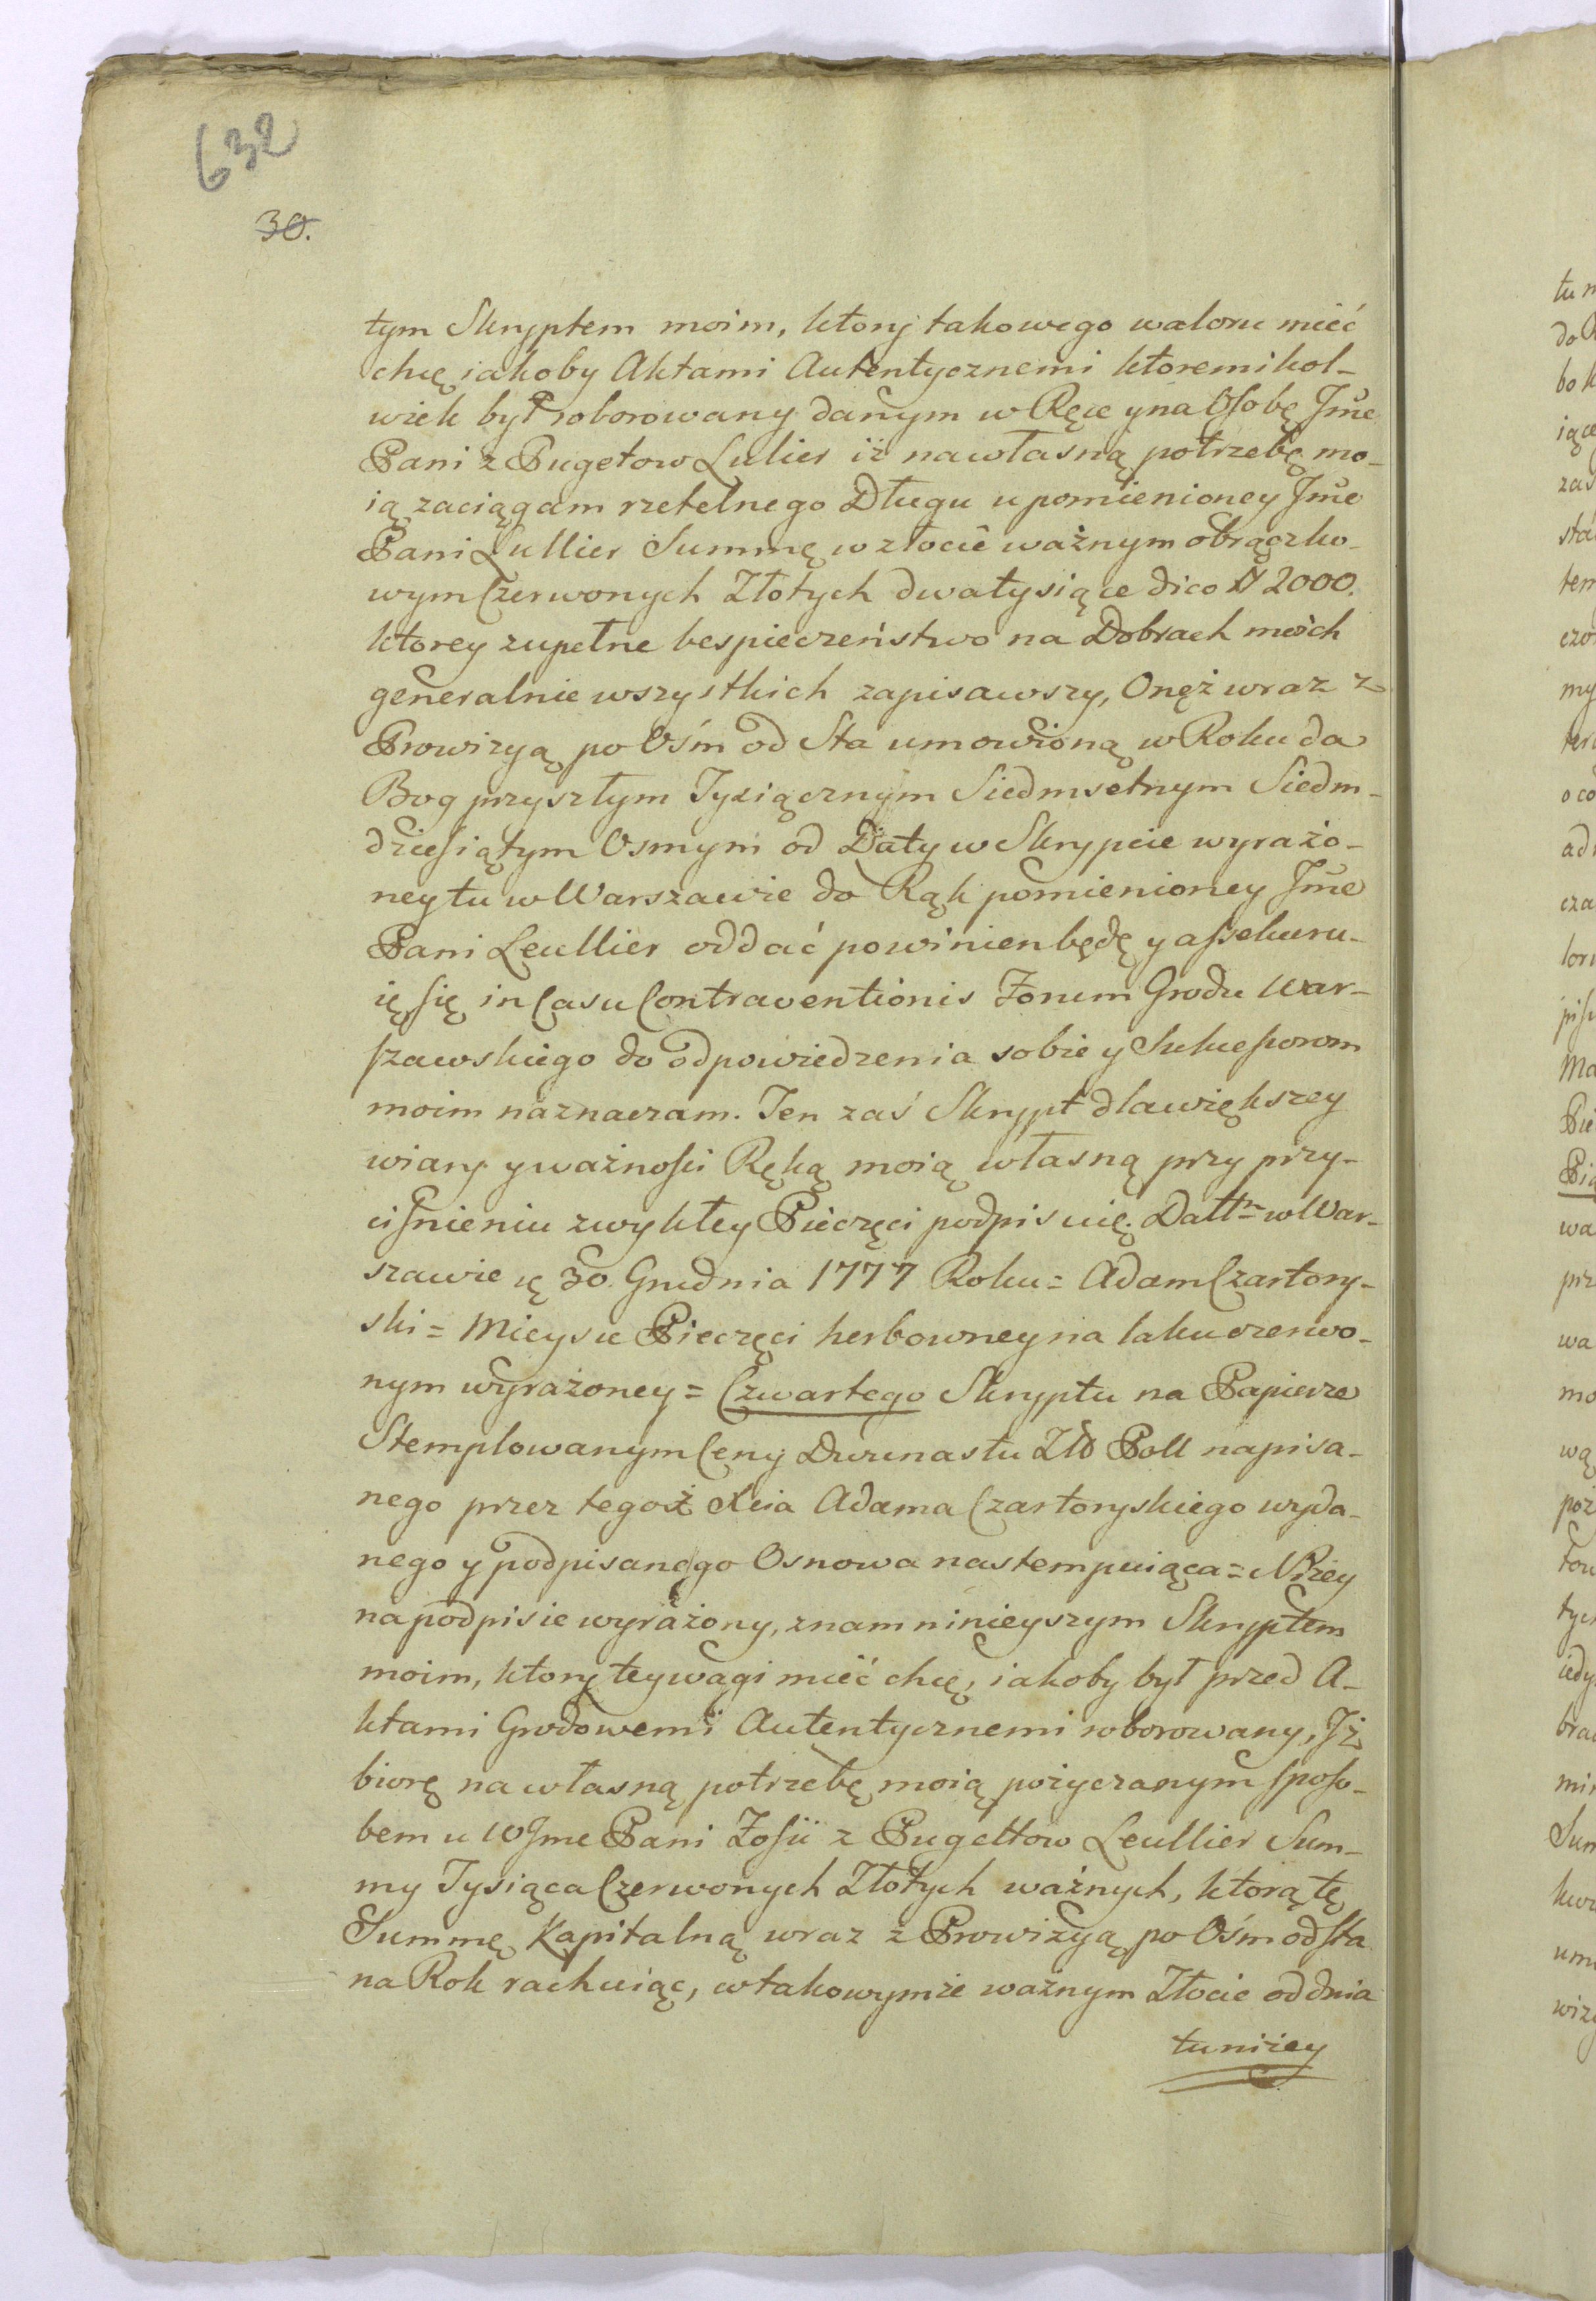 632
30.
tym Skryptem moim, ktory takowego waloru mieć
chcę iakoby Aktami Autentycznemi ktoremikol-
wiek był roborowany danym w Ręce y na Osobę Jme
Pani z Pugetow Lulier iż na własną potrzebę mo-
ią zaciągam rzetelnego Długu u pomienioney Jme
Pani Lullier Summę w złocie ważnym obrączko-
wym Czerwonych Złotych dwa tysiące dico # 2000.
ktorey zupełne bespieczeństwo na Dobrach moich
generalnie wszystkich zapisawszy, Onęż wraz z
Prowizyą po Ośm od Sta umowioną w Roku da
Bog przyszłym Tysiącznym Siedmsetnym Siedm-
dziesiątym Osmym od Daty w Skrypcie wyrażo-
ney tu w Warszawie do Rąk pomienioney Jme
Pani Leullier oddać powinien będę y assekuru-
ię się in Casu Contraventionis Forum Grodu War-
szawskiego do odpowiedzenia sobie y Sukcessorom
moim naznaczam. Ten zaś Skrypt dla większey
wiary y ważności Ręką moią własną przy przy-
ciśnieniu zwykłey Pieczęci podpisuię. Dattm w War-
szawie ię 30. Grudnia 1777 Roku = Adam Czartory-
ski = Mieysce Pieczęci herbowney na laku czerwo-
nym wyrażoney = Czwartego Skryptu na Papierze
Stemplowanym Ceny Dwunastu Złł Poll napisa-
nego przez tegoż Xcia Adama Czartoryskiego wyda-
nego y podpisanego Osnowa nastempuiąca = Niżey
na podpisie wyrażony, znam ninieyszym Skryptem
moim, ktory tey wagi mieć chcę, iakoby był przed A-
ktami Grodowemi Autentycznemi roborowany, Jż
biorę na własną potrzebę moią pożyczanym sposo-
bem u WJme Pani Zosii z Pugettow Leullier Sum-
my Tysiąca Czerwonych Złotych ważnych, ktorą tę
Summę Kapitalną wraz z Prowizyą po Ośm od sta
na Rok rachuiąc, w takowymże ważnym Złocie od dnia
tu niżey